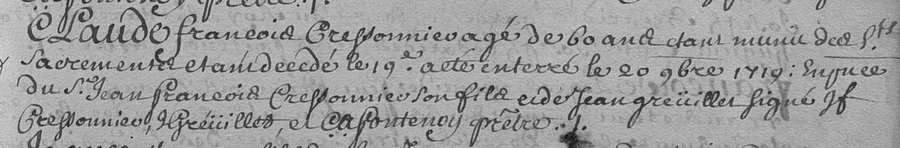 Claude francois Cressonnier agé de 60 ans etant muni des S.ts
Sacrements etant decedé le 19.e a eté enterré le 20 9bre 1719: En p̃nce
du S.r Jean francois Cressonnier son fils et de Jean greüillet signé J f
Cressonnier, J Greüillet, et C a fontenoy p̃retre ./.